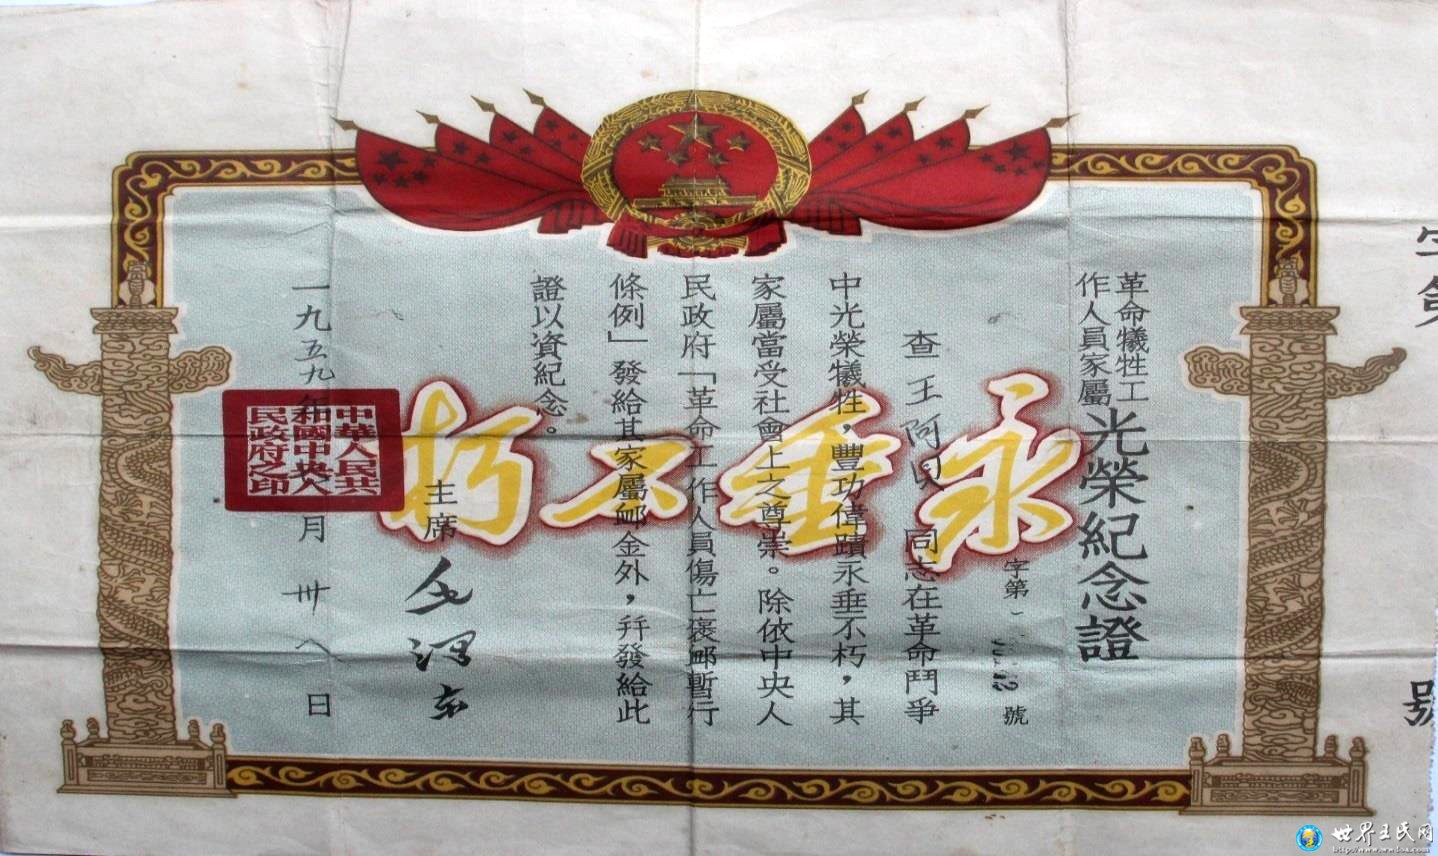 革命犧牲工
作人員家屬
光榮紀念證
字第
號
查王阿民　同志在革命鬥爭
中光榮犧牲，豐功偉蹟永垂不朽，其
家屬當受社會上之尊崇。除依中央人
民政府「革命工作人員傷亡褒卹暫行
條例」發給其家屬卹金外，幷發給此
證以資紀念。
主席 毛澤東
一九五九年　月卅八日
中華人民共
和國中央人
民政府之印
永垂不朽
字第
號
世界王氏网